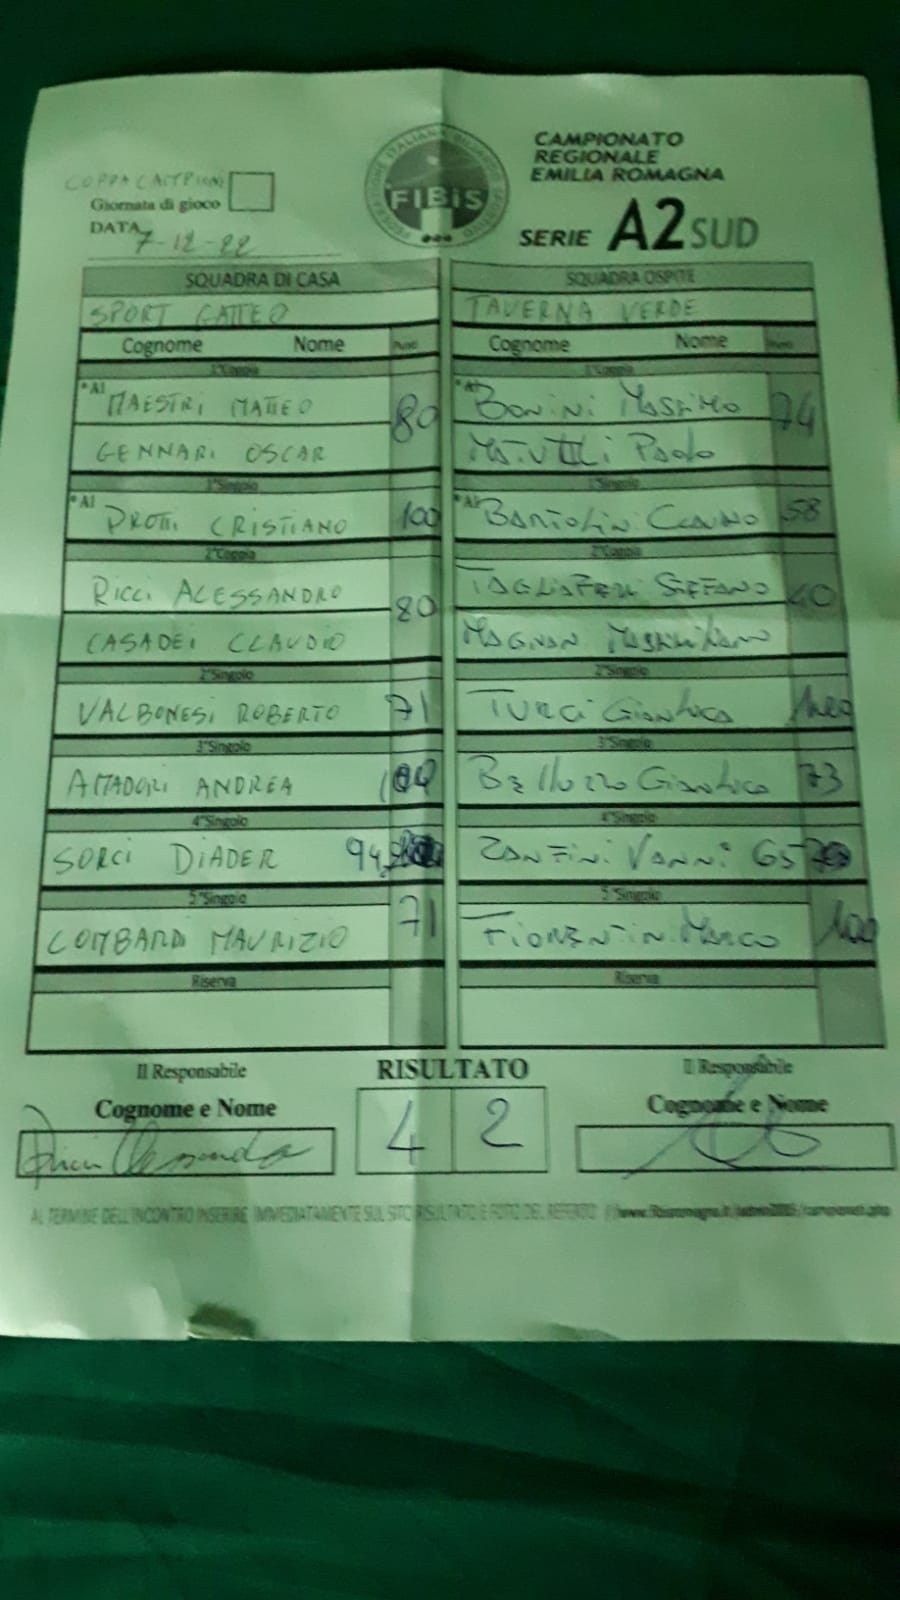 CAMPIONATO
REGIONALE
EMILIA ROMAGNA
SERIE A2 SUD
FIBiS
COPPA CAMPIONI
Giornata di gioco
DATA 7-12-22
SQUADRA DI CASA SQUADRA OSPITE
SPORT GATTEO TAVERNA VERDE
Cognome Nome Punti Cognome Nome Punti
1°Coppia 1°Coppia
*A1 MAESTRI MATTEO 80 *A1 BONINI MASSIMO 74
GENNARI OSCAR Paolo
1°Singolo 1°Singolo
*A1 PROTTI CRISTIANO 100 *A1 BARTOLINI 58
2°Coppia 2°Coppia
RICCI ALESSANDRO 80 STEFANO 40
CASADEI CLAUDIO MAGNANI MASSIMILIANO
2°Singolo 2°Singolo
VALBONESI ROBERTO 71 TURCI GIANLUCA 100
3°Singolo 3°Singolo
AMADORI ANDREA 100 GIANLUCA 73
4°Singolo 4°Singolo
SORCI DIADER 94 ZANFINI VANNI 65
5°Singolo 5°Singolo
LOMBARDI MAURIZIO 71 FIORENTINI MARCO 100
Riserva Riserva
Il Responsabile RISULTATO Il Responsabile
Cognome e Nome 4 2 Cognome e Nome
AL TERMINE DELL'INCONTRO INSERIRE IMMEDIATAMENTE SUL SITO RISULTATO E FOTO DEL REFERTO